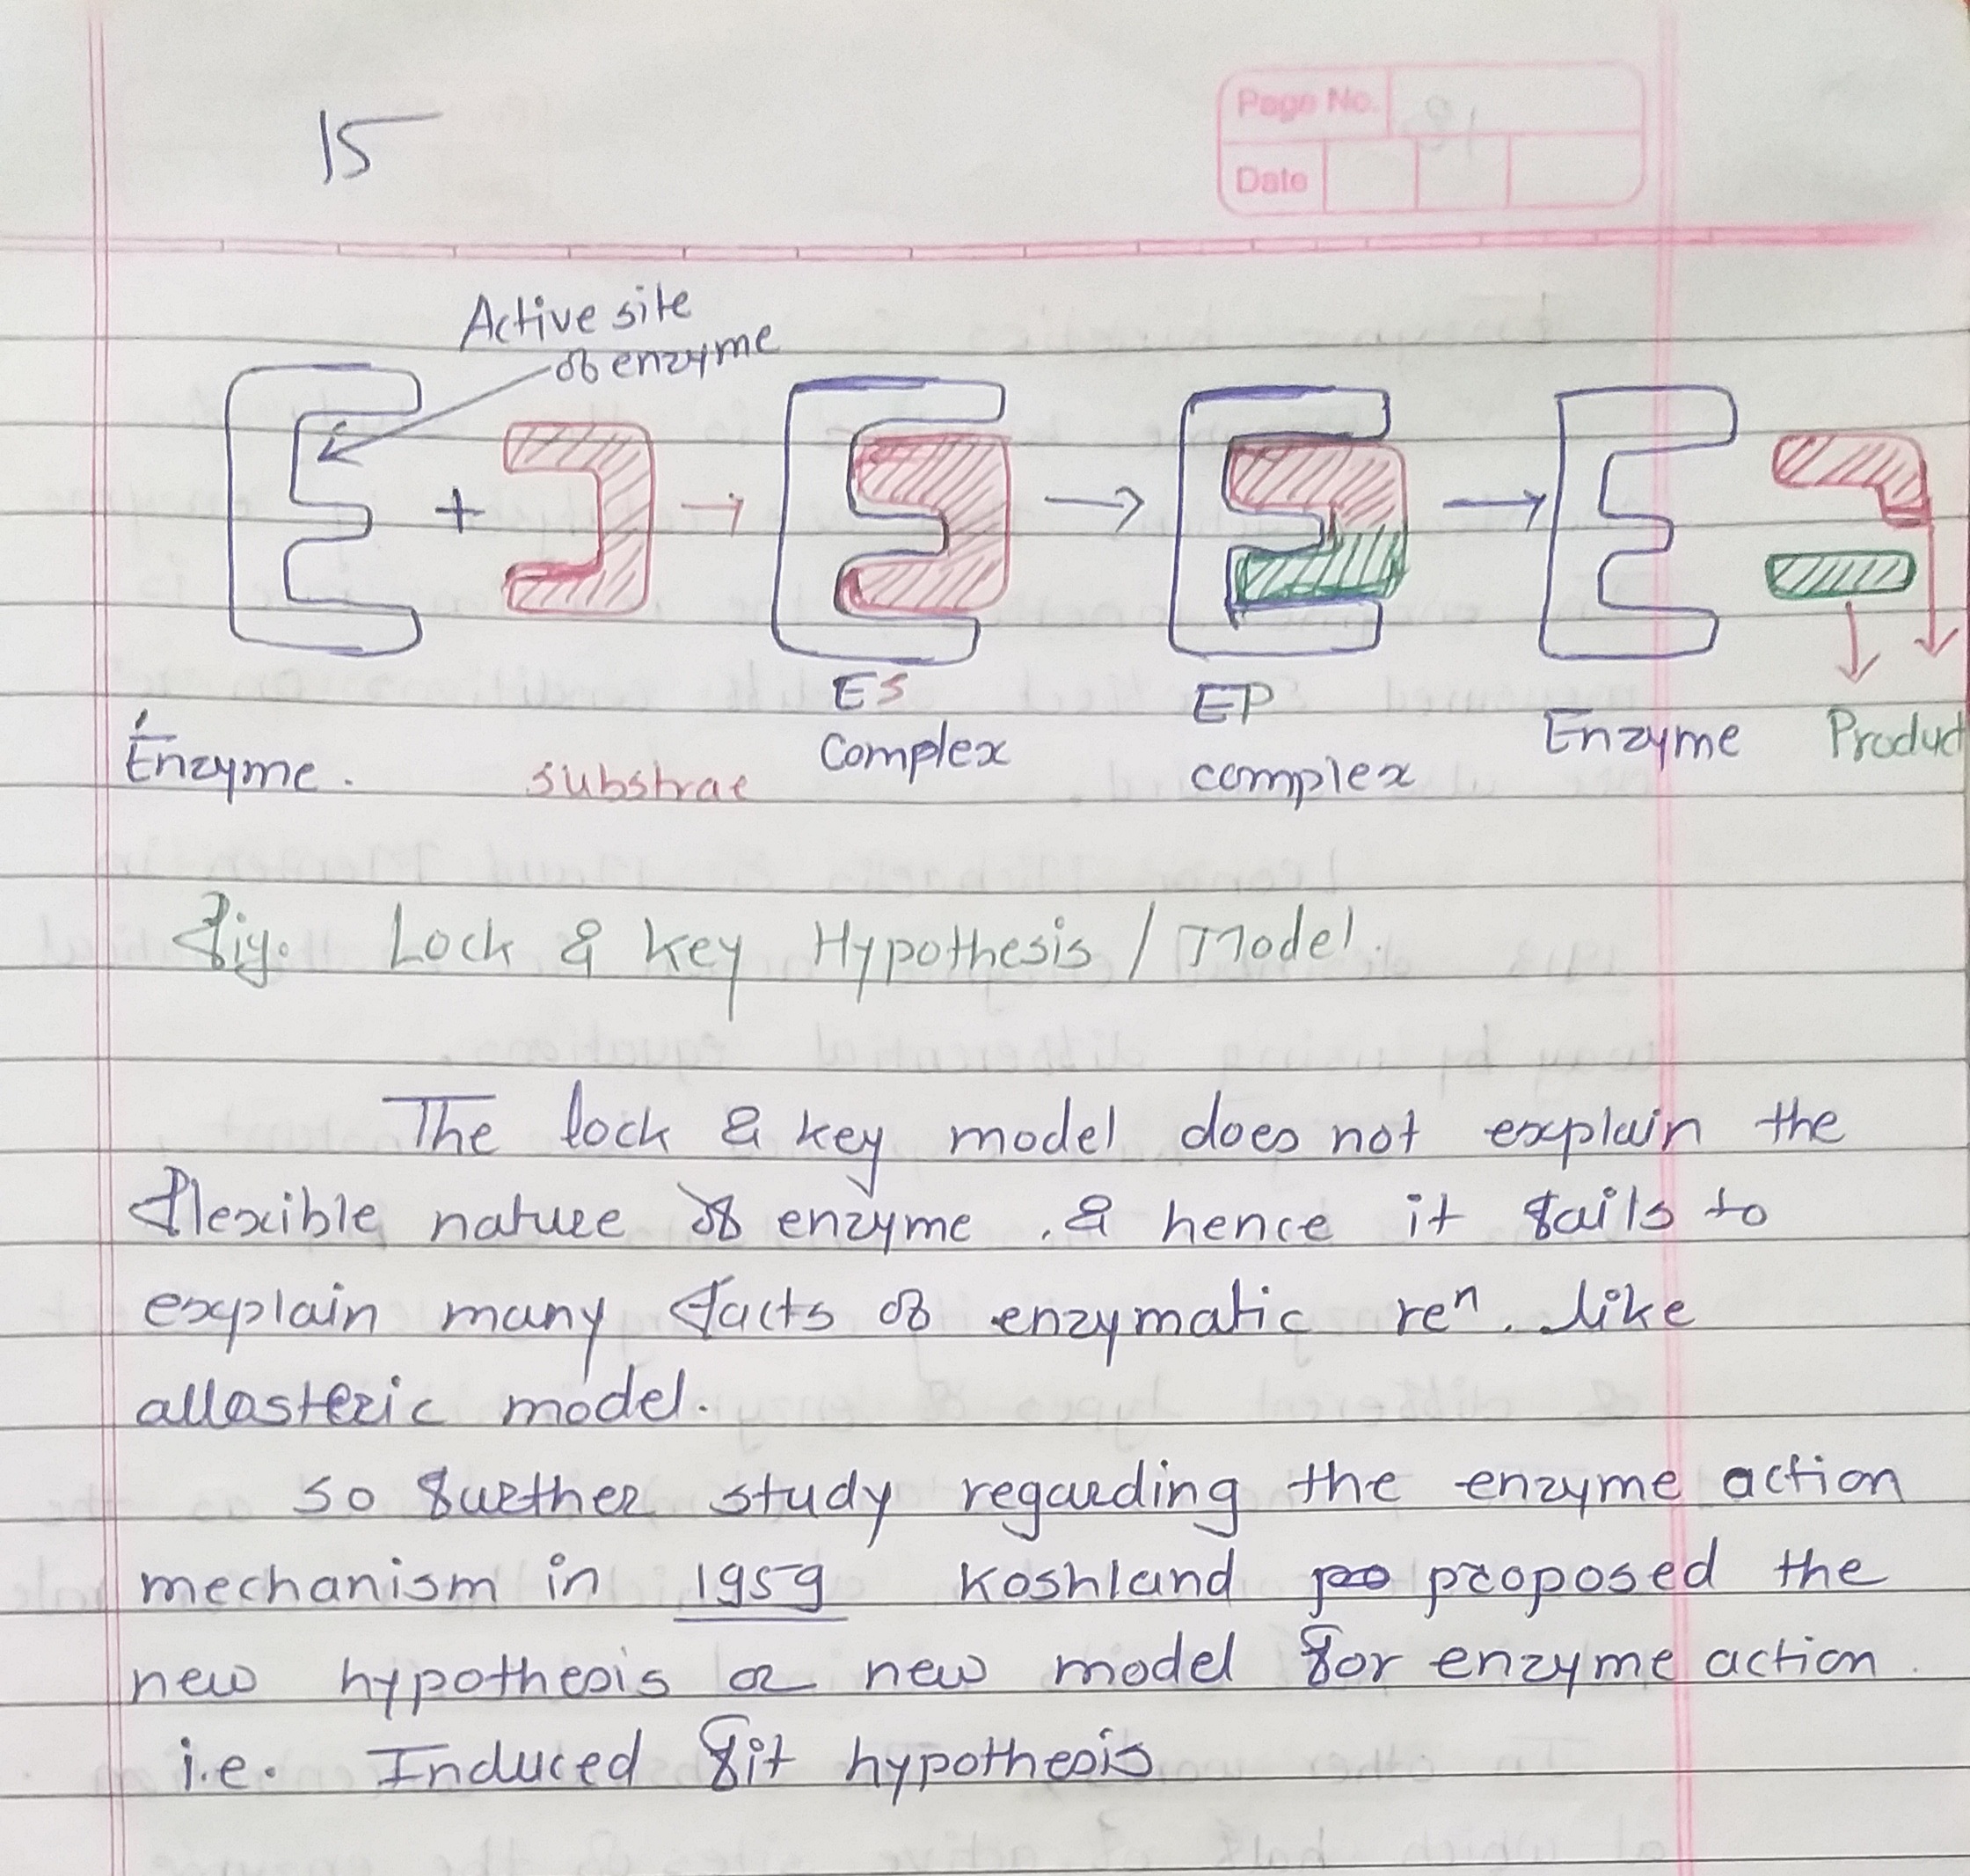 15
Page No.
Date
Active site
of enzyme
+
ES
complex
EP
complex
Enzyme.
substrae
Enzyme
Product
fig. Lock & key Hypothesis / Model.
The lock & key model does not explain the
flexible nature of enzyme . & hence it fails to
explain many facts of enzymatic reⁿ. like
allosteric model.
so further study regarding the enzyme action
mechanism in 1959 Koshland po proposed the
new hypothesis or new model for enzyme action.
i.e. Induced fit hypothesis